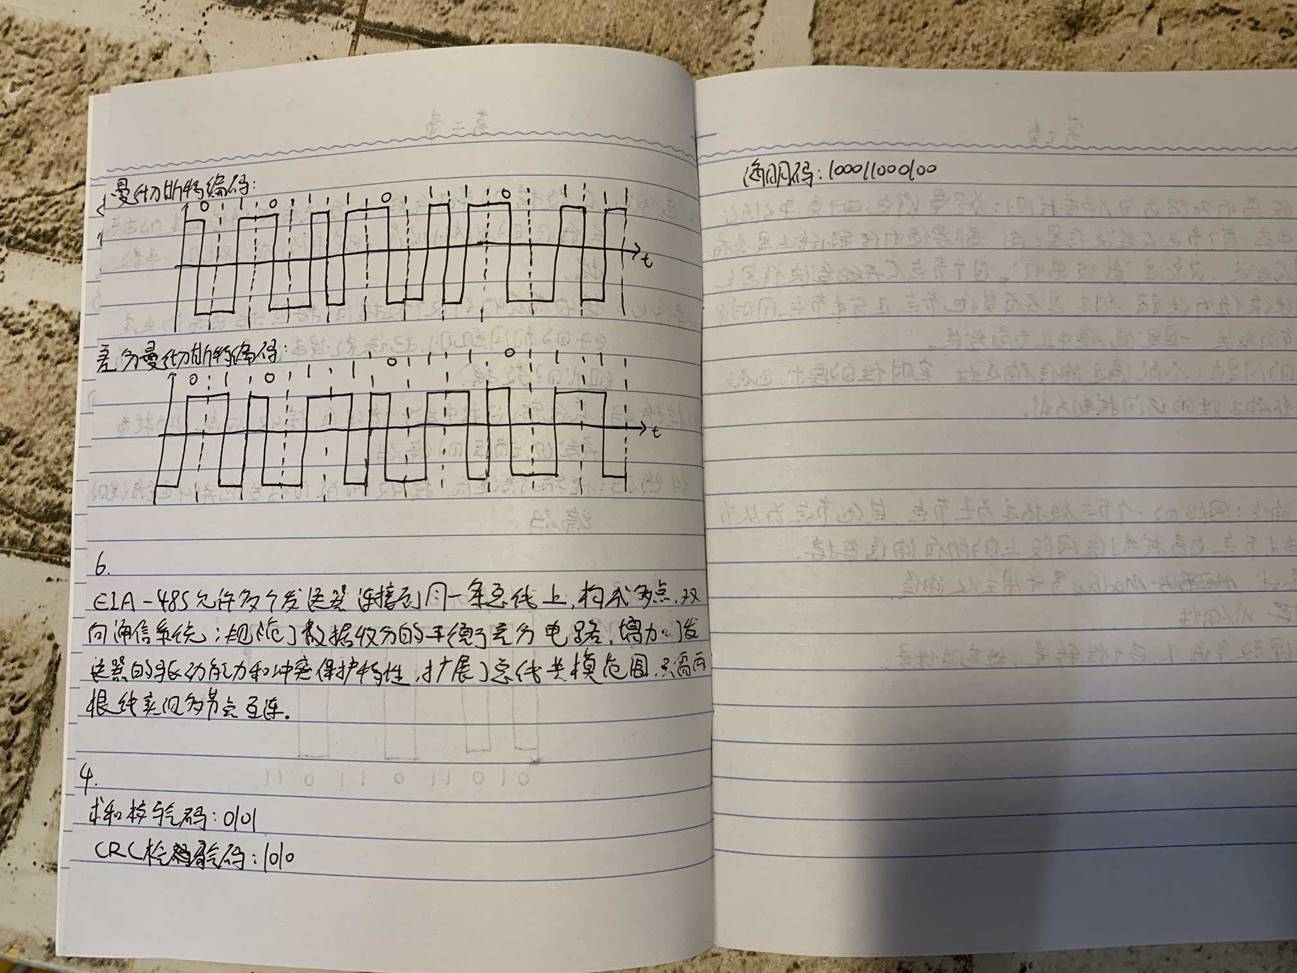 曼彻斯特编码:
0 1 0 1 1 1 0 1 1 0 1 1 1
t
差分曼彻斯特编码:
0 1 0 1 1 1 0 1 1 0 1 1 1
t
6.
EIA-485允许多个发送器连接到同一条总线上,构成多点、双
向通信系统;规范了数据收分的平衡了差分电路,增加了发
送器的驱动能力和冲突保护特性,扩展了总线共模范围,只需两
根线实现多节点互连。
4.
求和校验码:0101
CRC检验码:1010
海明码:100011000100